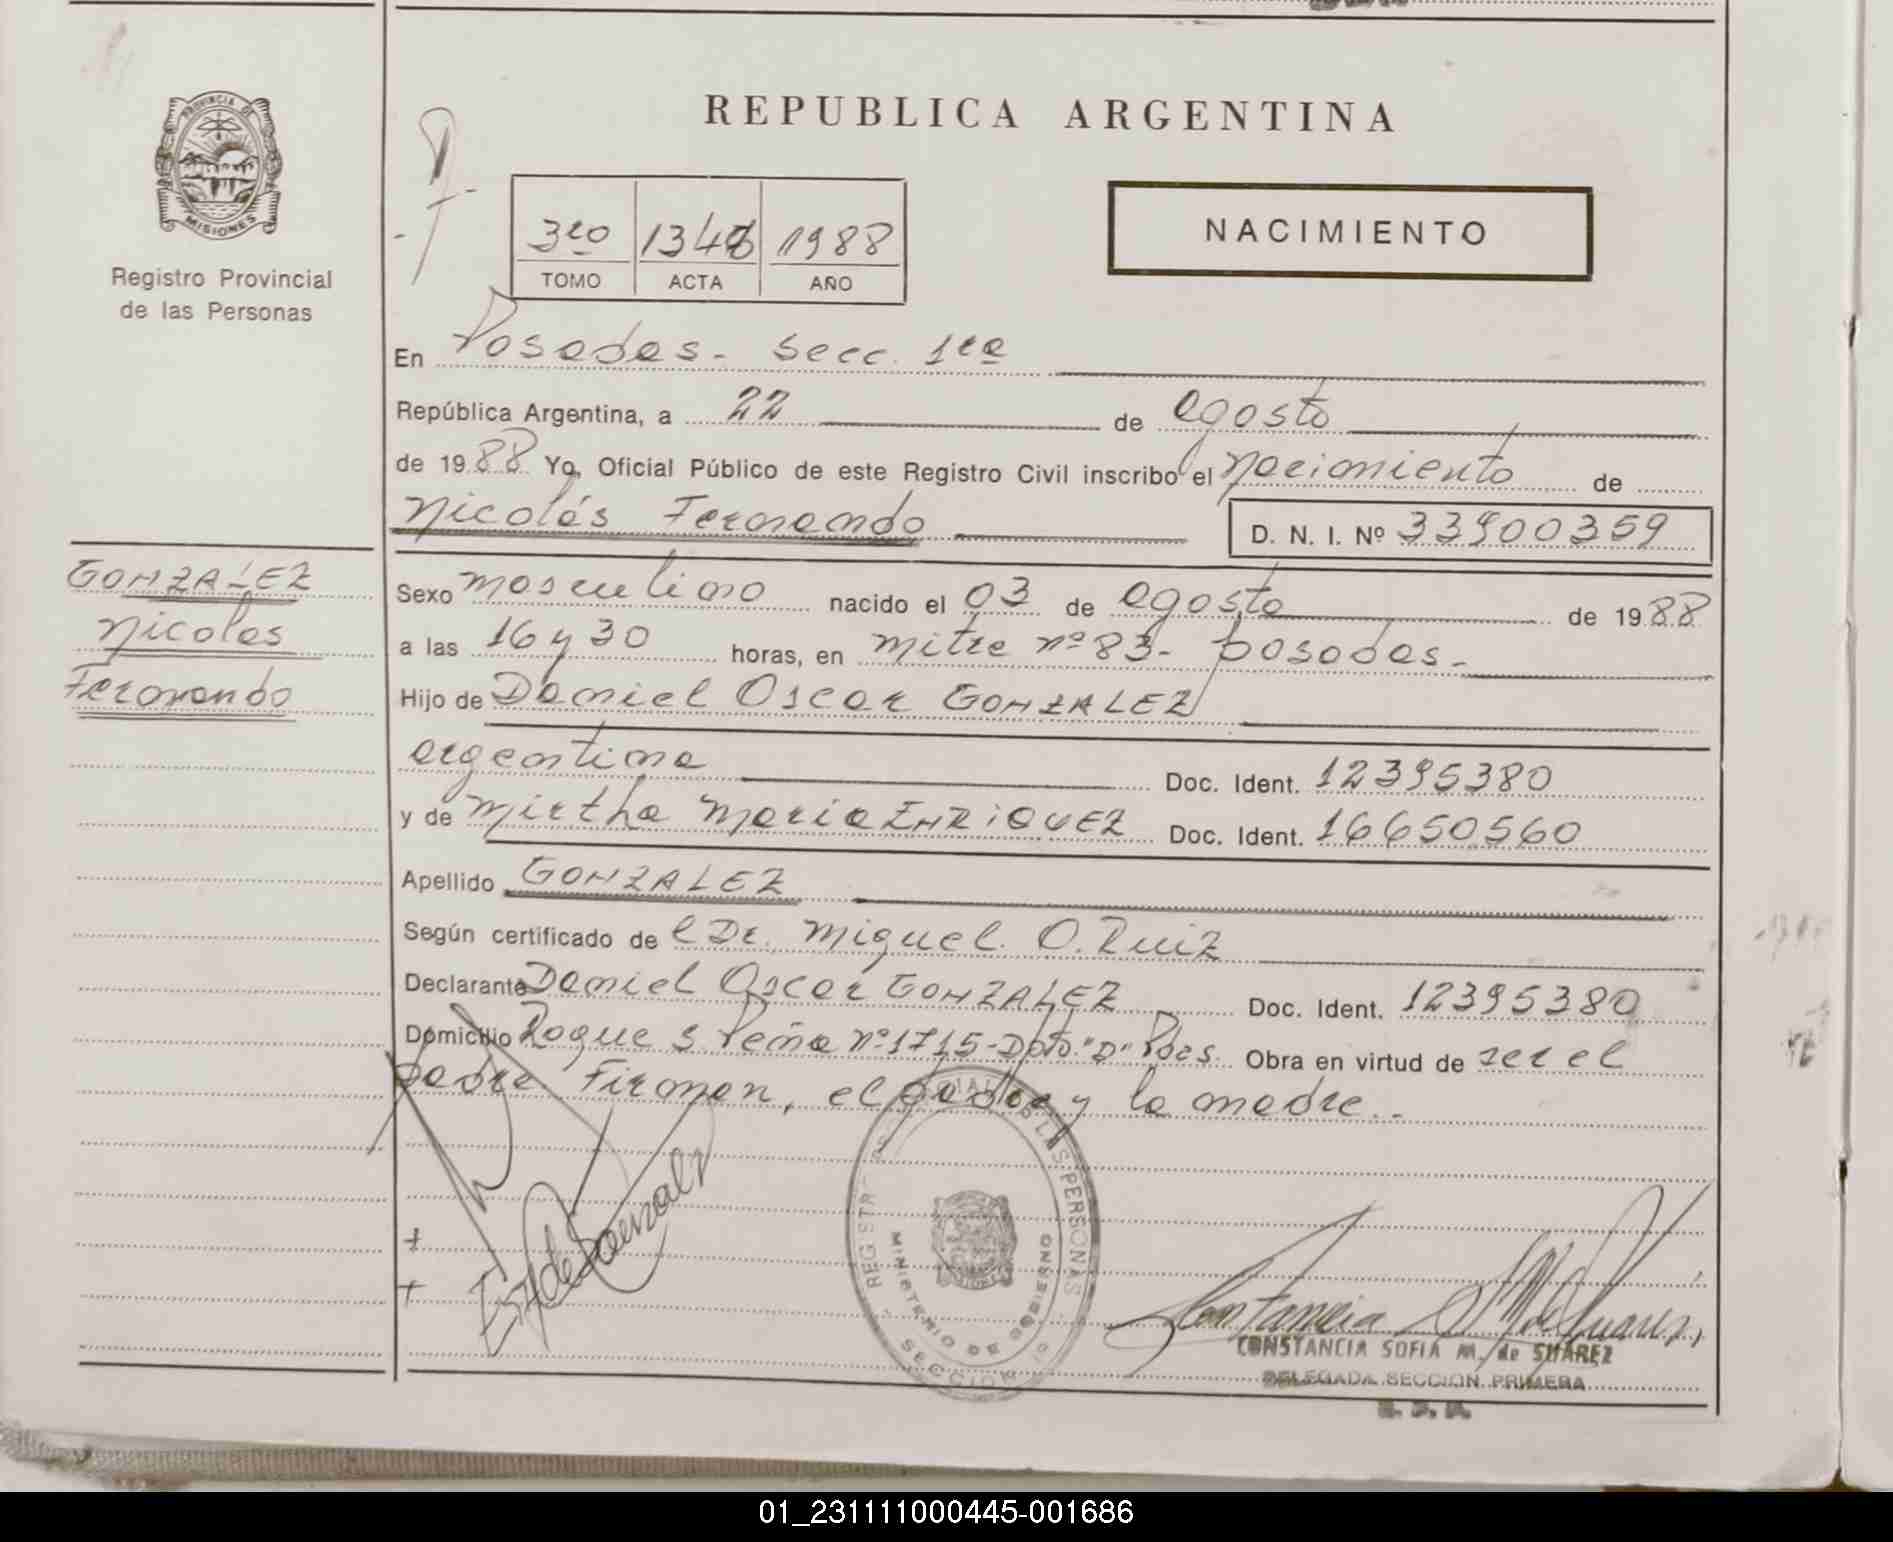 PROVINCIA DE
MISIONES
Registro Provincial
de las Personas
REPUBLICA ARGENTINA
3ro 1988
TOMO ACTA AÑO
NACIMIENTO
En Posadas - Secc. 1ra
República Argentina, a 22 de agosto
de 1988 Yo, Oficial Público de este Registro Civil inscribo el nacimiento de
Nicolás Fernando D. N. I. Nº 33900359
GONZALEZ
Nicolas
Fernando
Sexo masculino nacido el 03 de agosto de 1988
a las 16 y 30 horas, en mitre nº 83 - posadas -
Hijo de Daniel Oscar GONZALEZ
argentina Doc. Ident. 12395380
y de Mirtha Maria ENRIQUEZ Doc. Ident. 16650560
Apellido GONZALEZ
Según certificado de el Dr. Miguel O. Ruiz
Declarante Daniel Oscar GONZALEZ Doc. Ident. 12395380
Domicilio Roque S Peña nº 1715 - Dpto "D" Pdas. Obra en virtud de ser el
padre Firman, el padre y la madre..
REGISTRO PROVINCIAL DE LAS PERSONAS
MINISTERIO DE GOBIERNO
SECCION 1
CONSTANCIA SOFIA M. de SUAREZ
DELEGADA SECCION PRIMERA
01_231111000445-001686